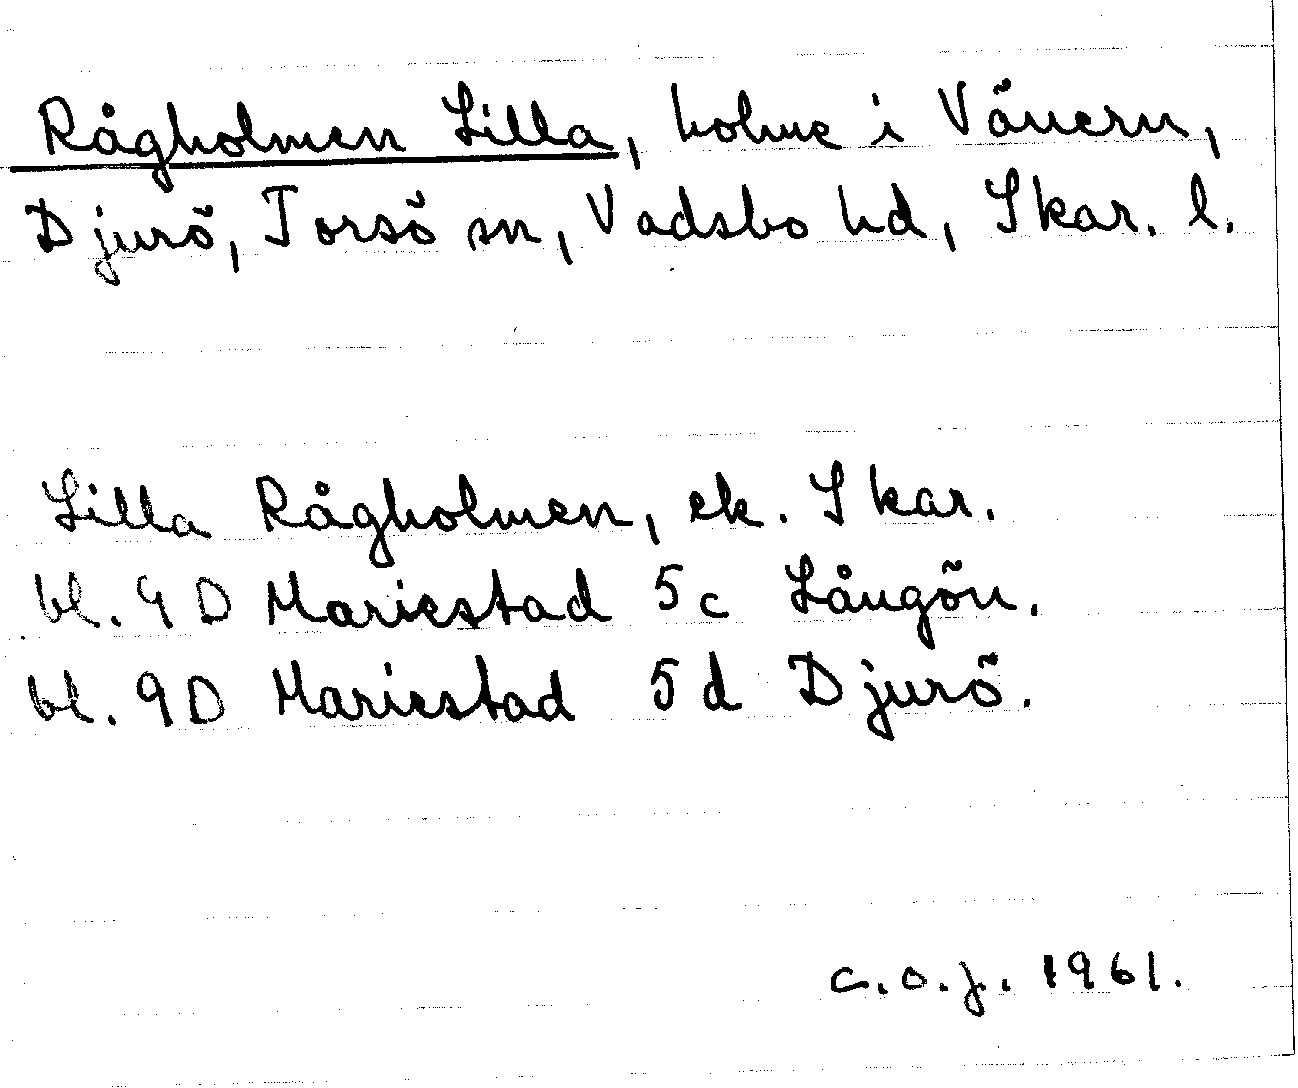 Rågholmen Lilla, holme i Vänern,
Djurö, Torsö sn, Vadsbo hd, Skar. l.
Lilla Rågholmen, ek. Skar.
bl. 9D Mariestad 5c Långön.
bl. 9D Mariestad 5d Djurö.
C.O.J. 1961.